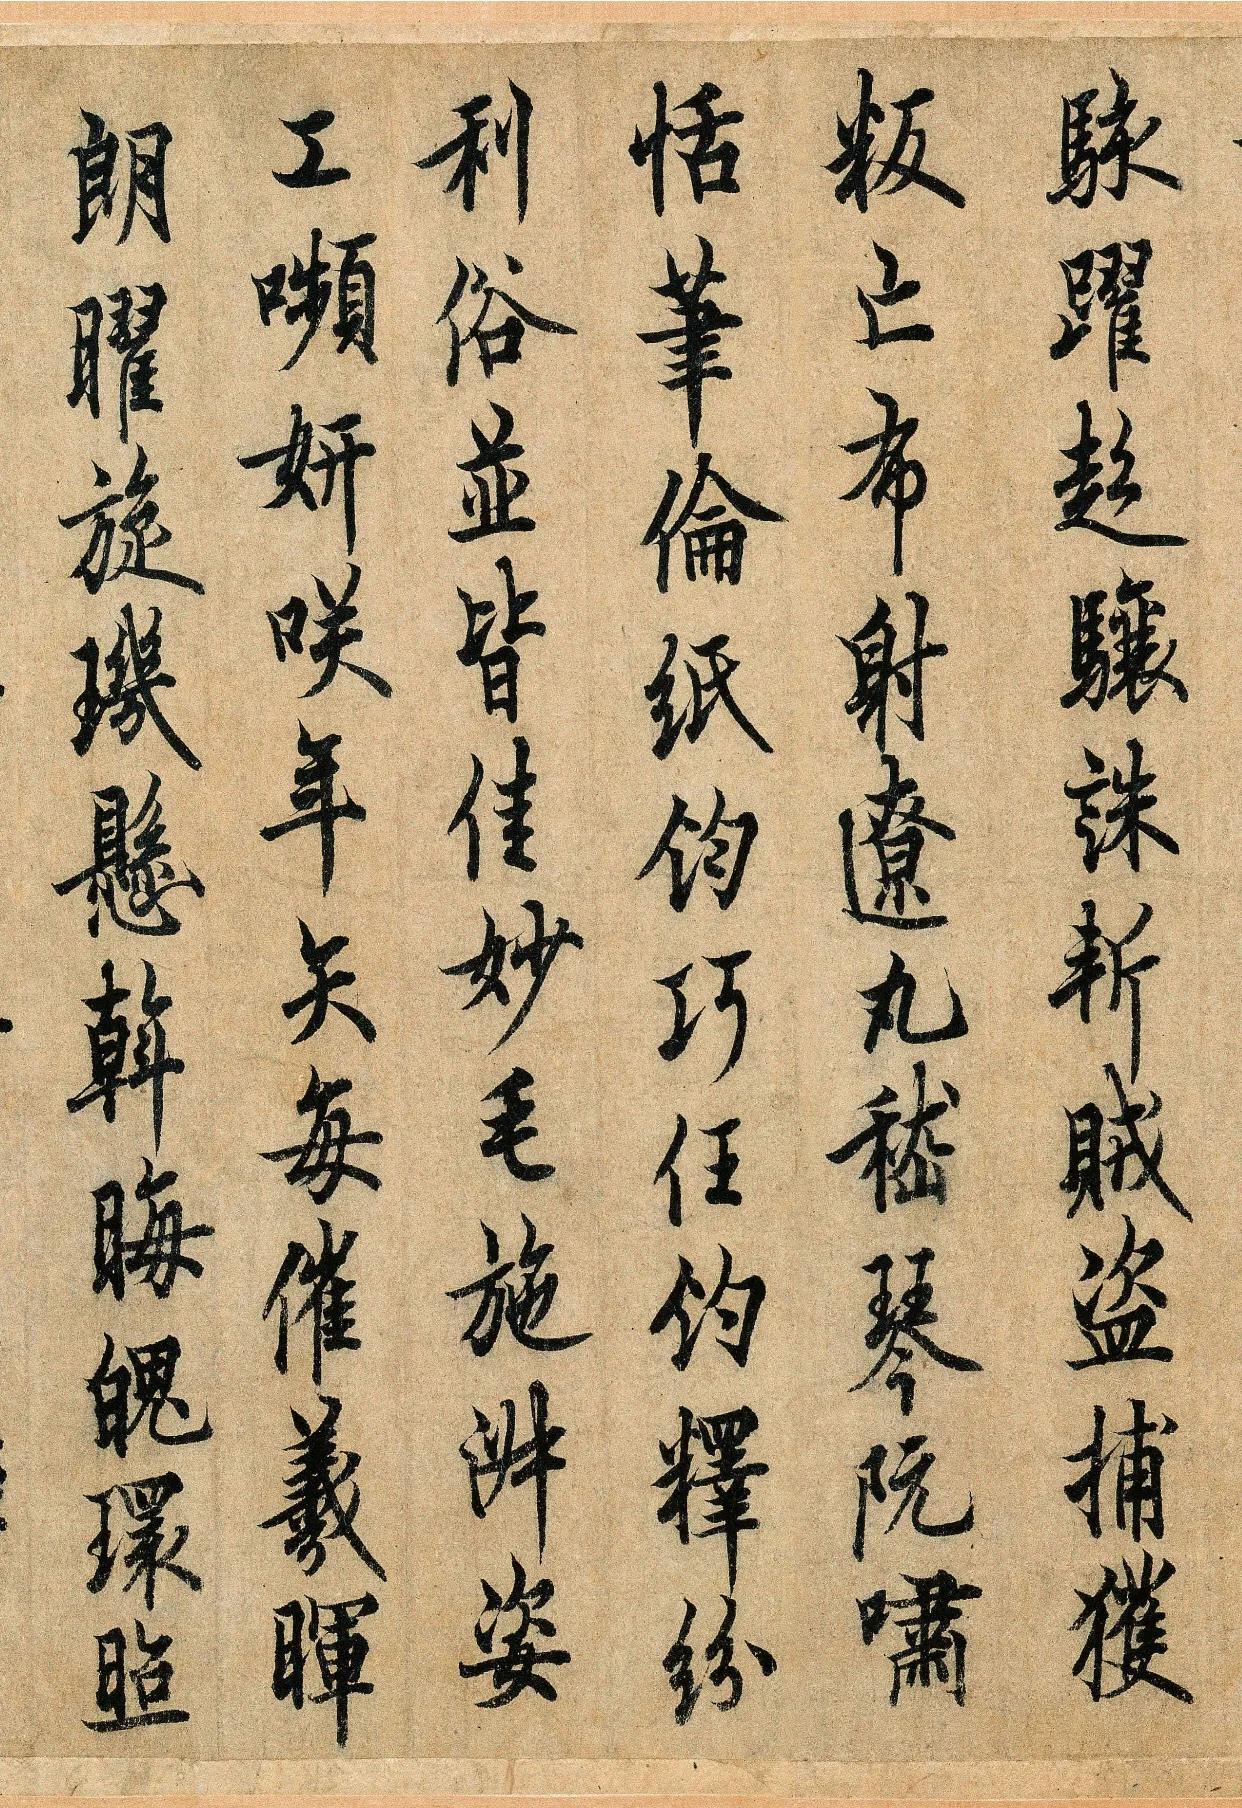 駭躍超驤誅斬賊盜捕獲
叛亡布射遼丸嵇琴阮嘯
恬筆倫紙鈞巧任鈞釋紛
利俗並皆佳妙毛施淑姿
工嚬妍咲年矢每催羲暉
朗曜旋璣懸斡晦魄環照